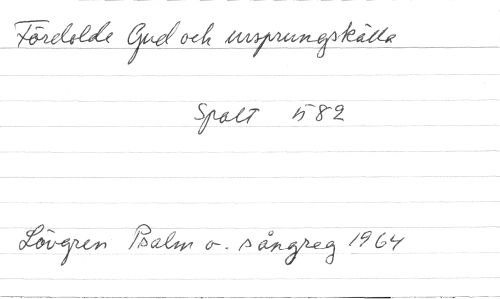 Fördolde Gud och ursprungskälla
Spalt 582
Lövgren Psalm o. sångreg 1964